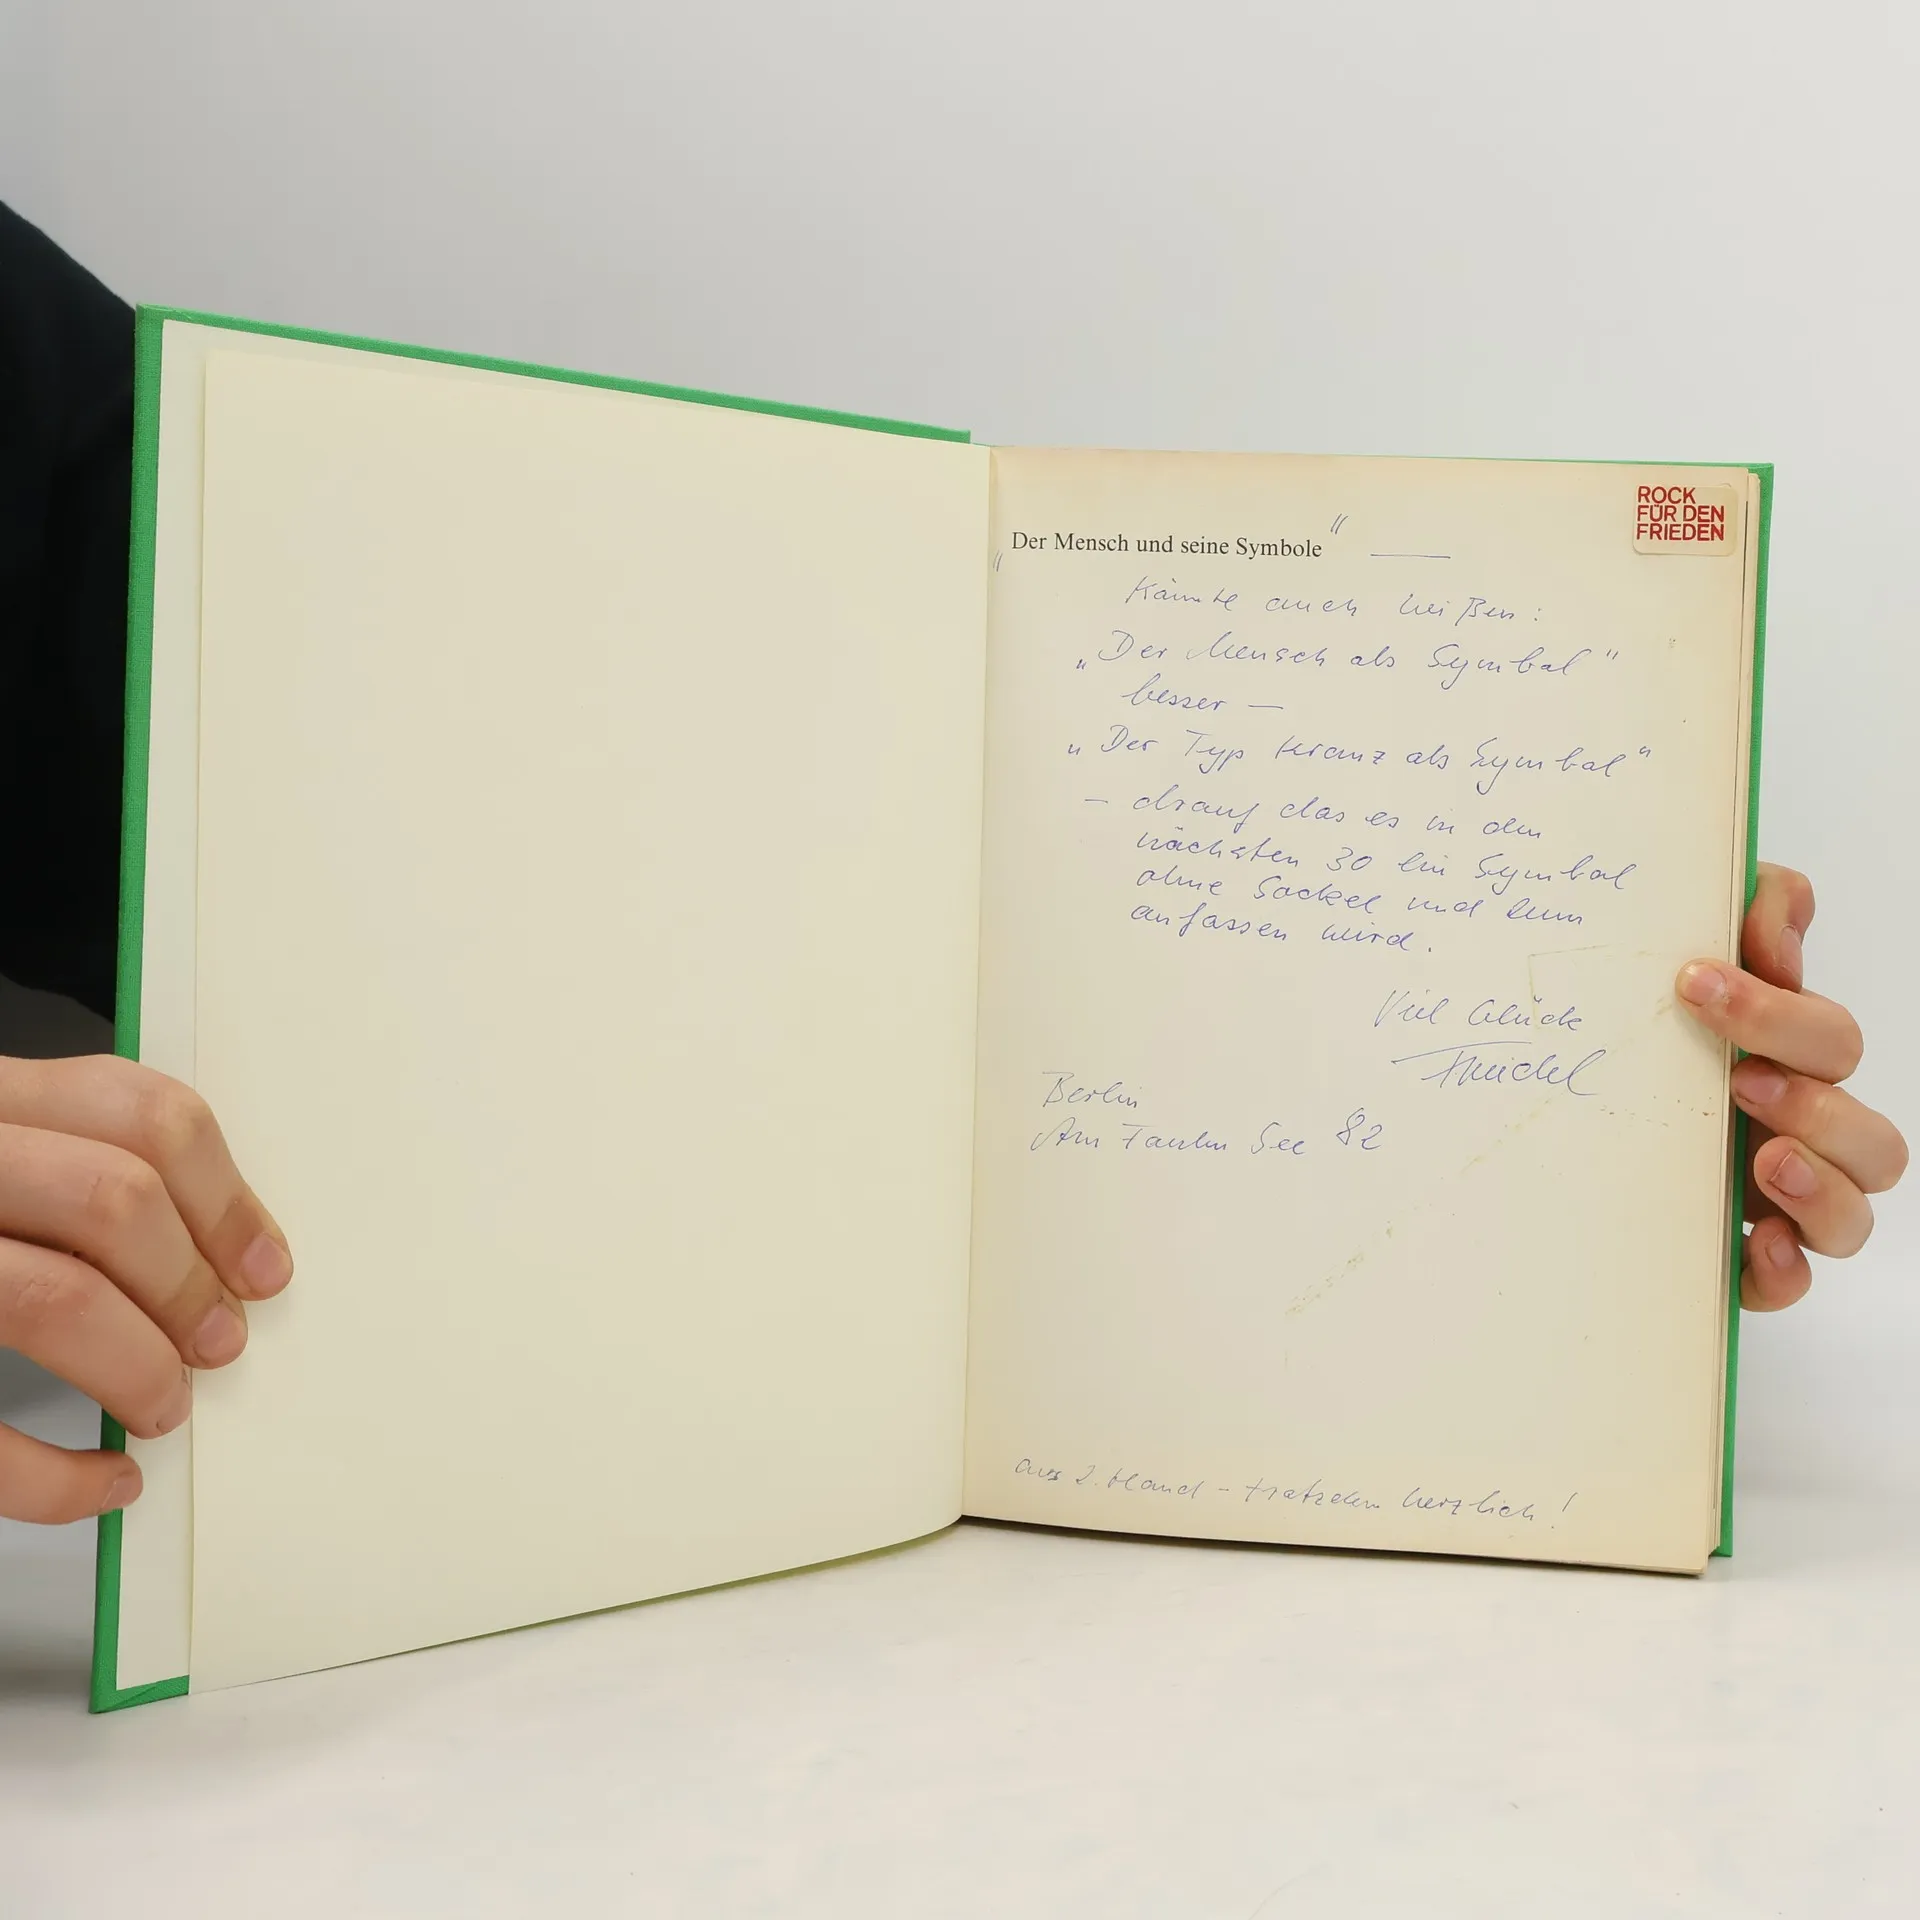 ROCK
FÜR DEN
FRIEDEN
„Der Mensch und seine Symbole“ —
Könnte auch heißen:
„Der Mensch als Symbol“
besser —
„Der Typ Kranz als Symbol“
– drauf das es in den
nächsten 30 ein Symbol
ohne Sockel und zum
anfassen wird.
Viel Glück
Berlin
Am Faulen See 82
aus 2. Hand – trotzdem herzlich!